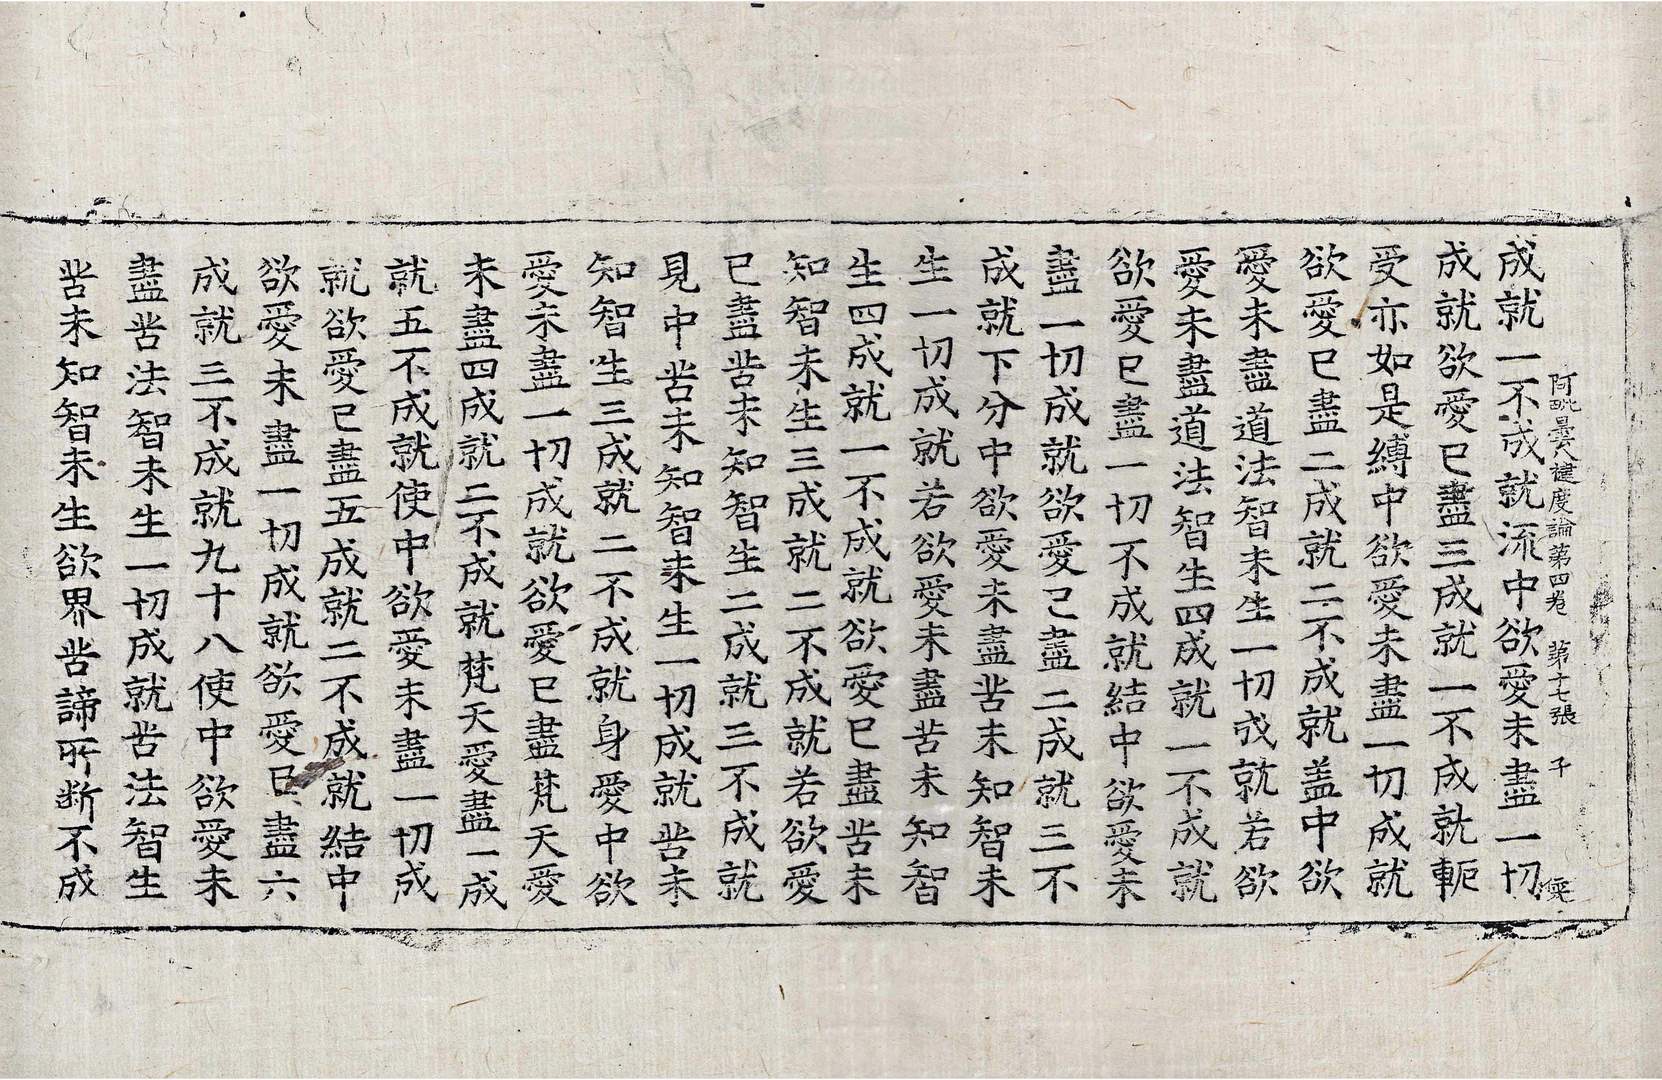 阿毗曇八揵度論第四卷　第十七張　千
成就一不成就流中欲愛未盡一切
成就欲愛已盡三成就一不成就軛
受亦如是縛中欲愛未盡一切成就
欲愛已盡二成就二不成就盖中欲
愛未盡道法智未生一切成就若欲
愛未盡道法智生四成就一不成就
欲愛已盡一切不成就結中欲愛未
盡一切成就欲愛已盡二成就三不
成就下分中欲愛未盡苦未知智未
生一切成就若欲愛未盡苦未知智
生四成就一不成就欲愛已盡苦未
知智未生三成就二不成就若欲愛
已盡苦未知智生二成就三不成就
見中苦未知智未生一切成就苦未
知智生三成就二不成就身愛中欲
愛未盡一切成就欲愛已盡梵天愛
未盡四成就二不成就梵天愛盡一成
就五不成就使中欲愛未盡一切成
就欲愛已盡五成就二不成就結中
欲愛未盡一切成就欲愛已盡六
成就三不成就九十八使中欲愛未
盡苦法智未生一切成就苦法智生
苦未知智未生欲界苦諦所斷不成